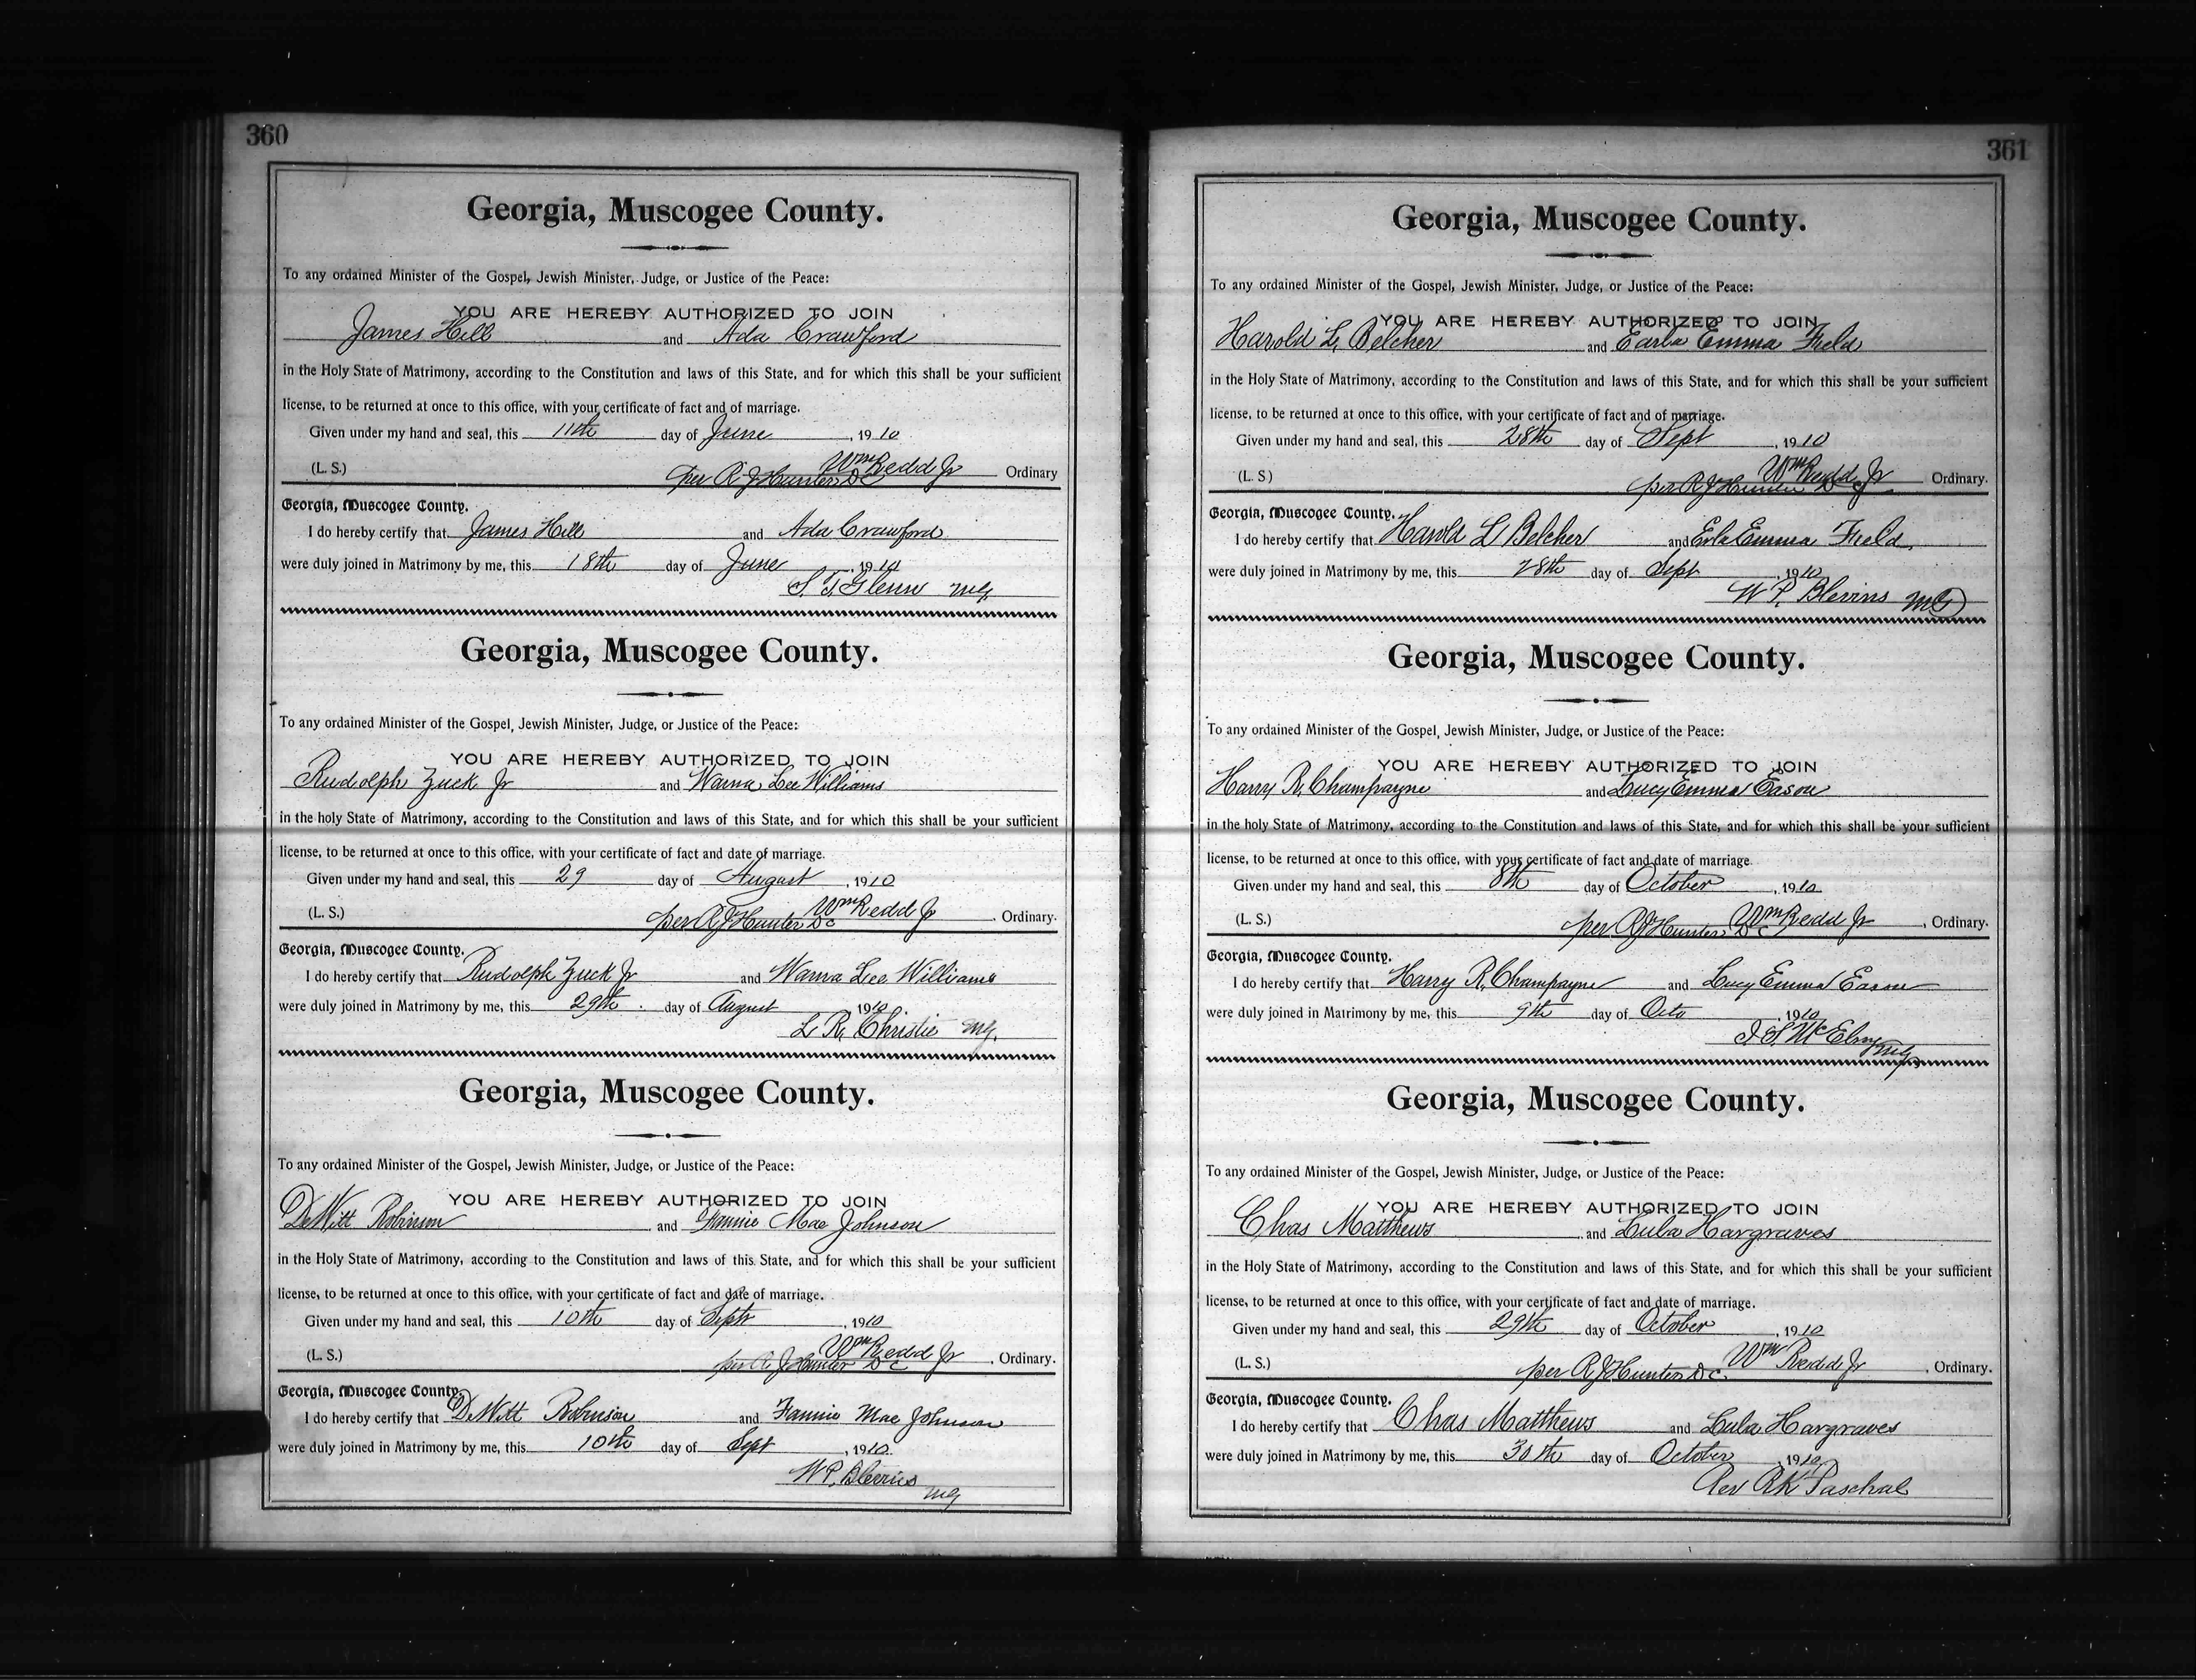 360
Georgia, Muscogee County.
To any ordained Minister of the Gospel, Jewish Minister, Judge, or Justice of the Peace:
YOU ARE HEREBY AUTHORIZED TO JOIN
James Hill and Ada Crawford
in the Holy State of Matrimony, according to the Constitution and laws of this State, and for which this shall be your sufficient
license, to be returned at once to this office, with your certificate of fact and of marriage.
Given under my hand and seal, this 11th day of June, 1910
Wm Redd Jr
(L. S.) per R J Hunter DC Ordinary
Georgia, Muscogee County.
I do hereby certify that James Hill and Ada Crawford
were duly joined in Matrimony by me, this 18th day of June, 1910
S. T. Glenn MG
Georgia, Muscogee County.
To any ordained Minister of the Gospel, Jewish Minister, Judge, or Justice of the Peace:
YOU ARE HEREBY AUTHORIZED TO JOIN
Rudolph Zuck Jr and Warna Lee Williams
in the holy State of Matrimony, according to the Constitution and laws of this State, and for which this shall be your sufficient
license, to be returned at once to this office, with your certificate of fact and date of marriage.
Given under my hand and seal, this 29 day of August, 1910
Wm Redd Jr
(L. S.) per R J Hunter DC, Ordinary.
Georgia, Muscogee County.
I do hereby certify that Rudolph Zuck Jr and Warna Lee Williams
were duly joined in Matrimony by me, this 29th day of August 1910.
L. R. Christie MG.
Georgia, Muscogee County.
To any ordained Minister of the Gospel, Jewish Minister, Judge, or Justice of the Peace:
YOU ARE HEREBY AUTHORIZED TO JOIN
DeWitt Robinson and Fannie Mae Johnson
in the Holy State of Matrimony, according to the Constitution and laws of this State, and for which this shall be your sufficient
license, to be returned at once to this office, with your certificate of fact and date of marriage.
Given under my hand and seal, this 10th day of Sept, 1910
Wm Redd Jr
(L. S.) per R J Hunter DC, Ordinary.
Georgia, Muscogee County.
I do hereby certify that DeWitt Robinson and Fannie Mae Johnson
were duly joined in Matrimony by me, this 10th day of Sept, 1910.
W P. Blevins
MG
361
Georgia, Muscogee County.
To any ordained Minister of the Gospel, Jewish Minister, Judge, or Justice of the Peace:
YOU ARE HEREBY AUTHORIZED TO JOIN
Harold L. Belcher and Earla Emma Field
in the Holy State of Matrimony, according to the Constitution and laws of this State, and for which this shall be your sufficient
license, to be returned at once to this office, with your certificate of fact and of marriage.
Given under my hand and seal, this 28th day of Sept, 1910
Wm Redd Jr
(L. S) per R J Hunter DC Ordinary.
Georgia, Muscogee County.
I do hereby certify that Harold L Belcher and Erla Emma Field
were duly joined in Matrimony by me, this 28th day of Sept, 1910
W P. Blevins MG
Georgia, Muscogee County.
To any ordained Minister of the Gospel, Jewish Minister, Judge, or Justice of the Peace:
YOU ARE HEREBY AUTHORIZED TO JOIN
Harry R. Champayne and Lucy Emma Eason
in the holy State of Matrimony, according to the Constitution and laws of this State, and for which this shall be your sufficient
license, to be returned at once to this office, with your certificate of fact and date of marriage.
Given under my hand and seal, this 8th day of October, 1910
Wm Redd Jr
(L. S.) per R J Hunter DC, Ordinary.
Georgia, Muscogee County.
I do hereby certify that Harry R. Champayne and Lucy Emma Eason
were duly joined in Matrimony by me, this 9th day of Octo, 1910
I. S. McElroy MG
Georgia, Muscogee County.
To any ordained Minister of the Gospel, Jewish Minister, Judge, or Justice of the Peace:
YOU ARE HEREBY AUTHORIZED TO JOIN
Chas Matthews and Lula Hargraves
in the Holy State of Matrimony, according to the Constitution and laws of this State, and for which this shall be your sufficient
license, to be returned at once to this office, with your certificate of fact and date of marriage.
Given under my hand and seal, this 29th day of October, 1910
Wm Redd Jr
(L. S.) per R J Hunter DC., Ordinary.
Georgia, Muscogee County.
I do hereby certify that Chas Matthews and Lula Hargraves
were duly joined in Matrimony by me, this 30th day of October, 1910
Rev R K Paschal